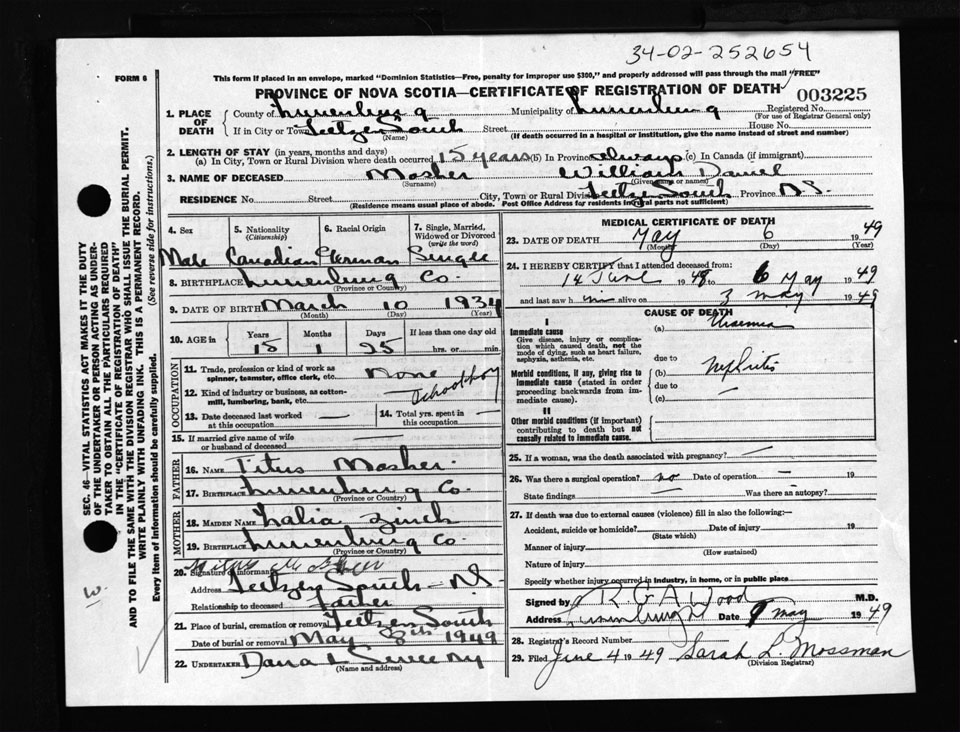 34-02-252654
FORM 6
This form if placed in an envelope, marked "Dominion Statistics—Free, penalty for improper use $300," and properly addressed will pass through the mail "FREE"
PROVINCE OF NOVA SCOTIA—CERTIFICATE OF REGISTRATION OF DEATH
003225
1. PLACE OF DEATH
County of Lunenburg Municipality of Lunenburg Registered No.
(For use of Registrar General only)
If in City or Town Feltzen South Street House No.
(Name) (If death occurred in a hospital or institution, give the name instead of street and number)
2. LENGTH OF STAY (in years, months and days)
(a) In City, Town or Rural Division where death occurred 15 years (b) In Province always (c) In Canada (if immigrant)
3. NAME OF DECEASED Mosher William Daniel
(Surname) (Given name or names)
RESIDENCE No. Street City, Town or Rural Division Feltzen South Province N.S.
(Residence means usual place of abode. Post Office Address for residents in rural parts not sufficient)
4. Sex 5. Nationality 6. Racial Origin 7. Single, Married, Widowed or Divorced
(Citizenship) (write the word)
Male Canadian German Single
8. BIRTHPLACE Lunenburg Co.
(Province or Country)
9. DATE OF BIRTH March 10 1934
(Month) (Day) (Year)
10. AGE in Years Months Days If less than one day old
15 1 25 hrs. or min.
OCCUPATION
11. Trade, profession or kind of work as spinner, teamster, office clerk, etc. None
12. Kind of industry or business, as cotton-mill, lumbering, bank, etc. Schoolboy
13. Date deceased last worked at this occupation —
14. Total yrs. spent in this occupation —
15. If married give name of wife or husband of deceased —
FATHER
16. NAME Titus Mosher
17. BIRTHPLACE Lunenburg Co.
(Province or Country)
MOTHER
18. MAIDEN NAME Zinck
19. BIRTHPLACE Lunenburg Co.
(Province or Country)
20. Signature of informant
Address Feltzen South N.S.
Relationship to deceased Father
21. Place of burial, cremation or removal Feltzen South
Date of burial or removal May 8th 1949
22. UNDERTAKER Dana L Sweeny
(Name and address)
MEDICAL CERTIFICATE OF DEATH
23. DATE OF DEATH May 6 1949
(Month) (Day) (Year)
24. I HEREBY CERTIFY that I attended deceased from:
14 June 1948 to 6 May 1949
and last saw him alive on 3 May 1949
CAUSE OF DEATH
I
Immediate cause (a) Uraemia
Give disease, injury or complication which caused death, not the mode of dying, such as heart failure, asphyxia, asthenia, etc.
due to
Morbid conditions, if any, giving rise to immediate cause (stated in order proceeding backwards from immediate cause).
(b) Nephritis
due to —
(c)
II
Other morbid conditions (if important) contributing to death but not causally related to immediate cause.
25. If a woman, was the death associated with pregnancy? —
26. Was there a surgical operation? no Date of operation — 19
State findings — Was there an autopsy? —
27. If death was due to external causes (violence) fill in also the following:—
Accident, suicide or homicide? Date of injury 19
(State which)
Manner of injury
(How sustained)
Nature of injury
Specify whether injury occurred in industry, in home, or in public place
Signed by R G A Wood M.D.
Address Lunenburg Date 9 May 1949
28. Registrar's Record Number
29. Filed June 4 1949 Sarah L. Mossman
(Division Registrar)
SEC. 46—VITAL STATISTICS ACT MAKES IT THE DUTY
OF THE UNDERTAKER OR PERSON ACTING AS UNDERTAKER TO OBTAIN ALL THE PARTICULARS REQUIRED
IN THE "CERTIFICATE OF REGISTRATION OF DEATH"
AND TO FILE THE SAME WITH THE DIVISION REGISTRAR WHO SHALL ISSUE THE BURIAL PERMIT.
WRITE PLAINLY WITH UNFADING INK. THIS IS A PERMANENT RECORD.
Every item of Information should be carefully supplied. (See reverse side for instructions.)
w.